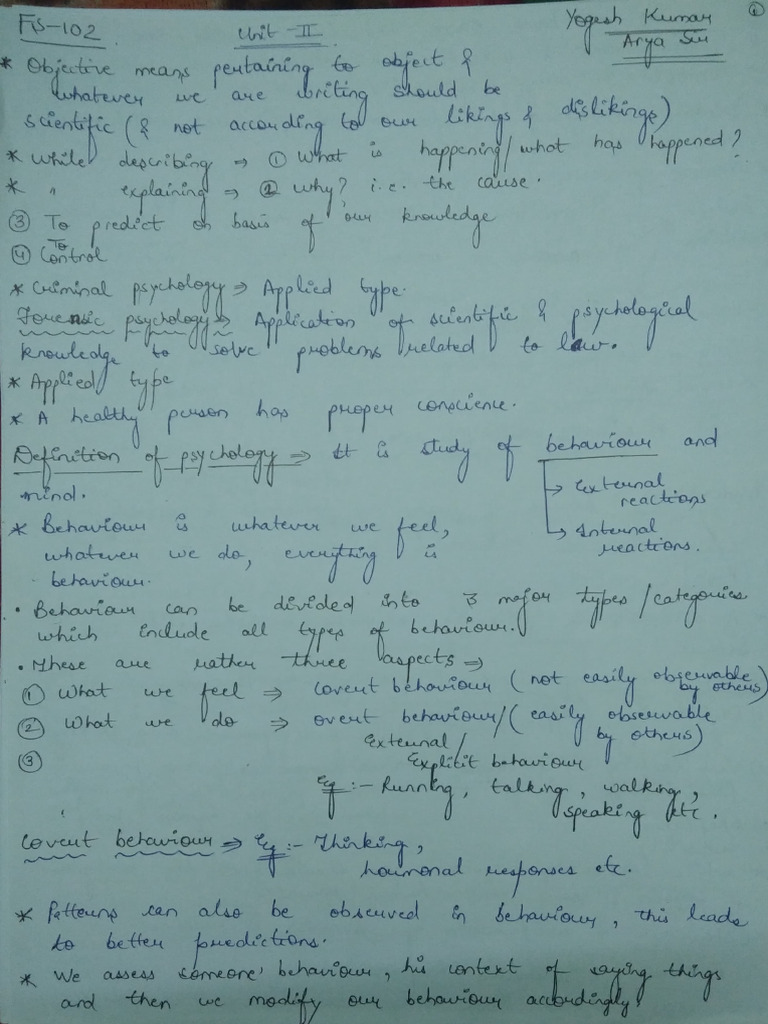 ①
FS-102
Unit-II
Yogesh Kumar
Arya Sir
* Objective means pertaining to object &
whatever we are writing should be
scientific (& not according to our likings & dislikings)
* While describing ⇒ ① What is happening/what has happened?
* " explaining ⇒ ② Why? i.e. the cause.
③ To predict on basis of our knowledge
④ To Control
* Criminal psychology ⇒ Applied type.
Forensic psychology ⇒ Application of scientific & psychological
knowledge to solve problems related to law.
* Applied type
* A healthy person has proper conscience.
Definition of psychology ⇒ It is study of behaviour and
mind.
→ External
reactions
→ Internal
reactions.
* Behaviour is whatever we feel,
whatever we do, everything is
behaviour.
• Behaviour can be divided into 3 major types/categories
which include all types of behaviour.
• These are rather three aspects ⇒
① What we feel ⇒ covert behaviour (not easily observable
by others)
② What we do ⇒ overt behaviour/(easily observable
by others)
External/
Explicit behaviour
③
Eg:- Running, talking, walking,
speaking etc.
Covert behaviour ⇒ Eg:- Thinking,
hormonal responses etc.
* Patterns can also be observed in behaviour, this leads
to better predictions.
* We assess someone' behaviour, his context of saying things
and then we modify our behaviour accordingly.